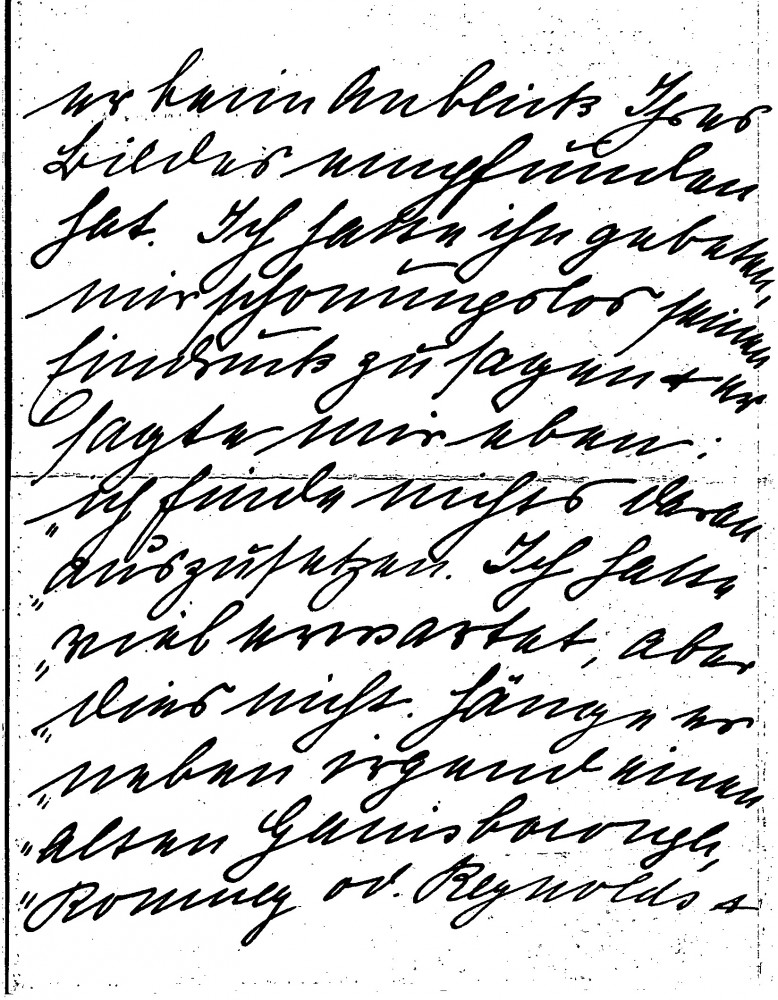 er beim Anblick Ihres
Bildes empfunden
hat. Ich hatte ihn gebeten,
mir schonungslos seinen
Eindruck zu sagen + er
sagte mir eben:
"ich finde nichts daran
"auszusetzen. Ich hatte
"viel erwartet, aber
"dies nicht. Hänge er
"neben irgend einen
"alten Gainsborough,
"Romney od. Reynolds +